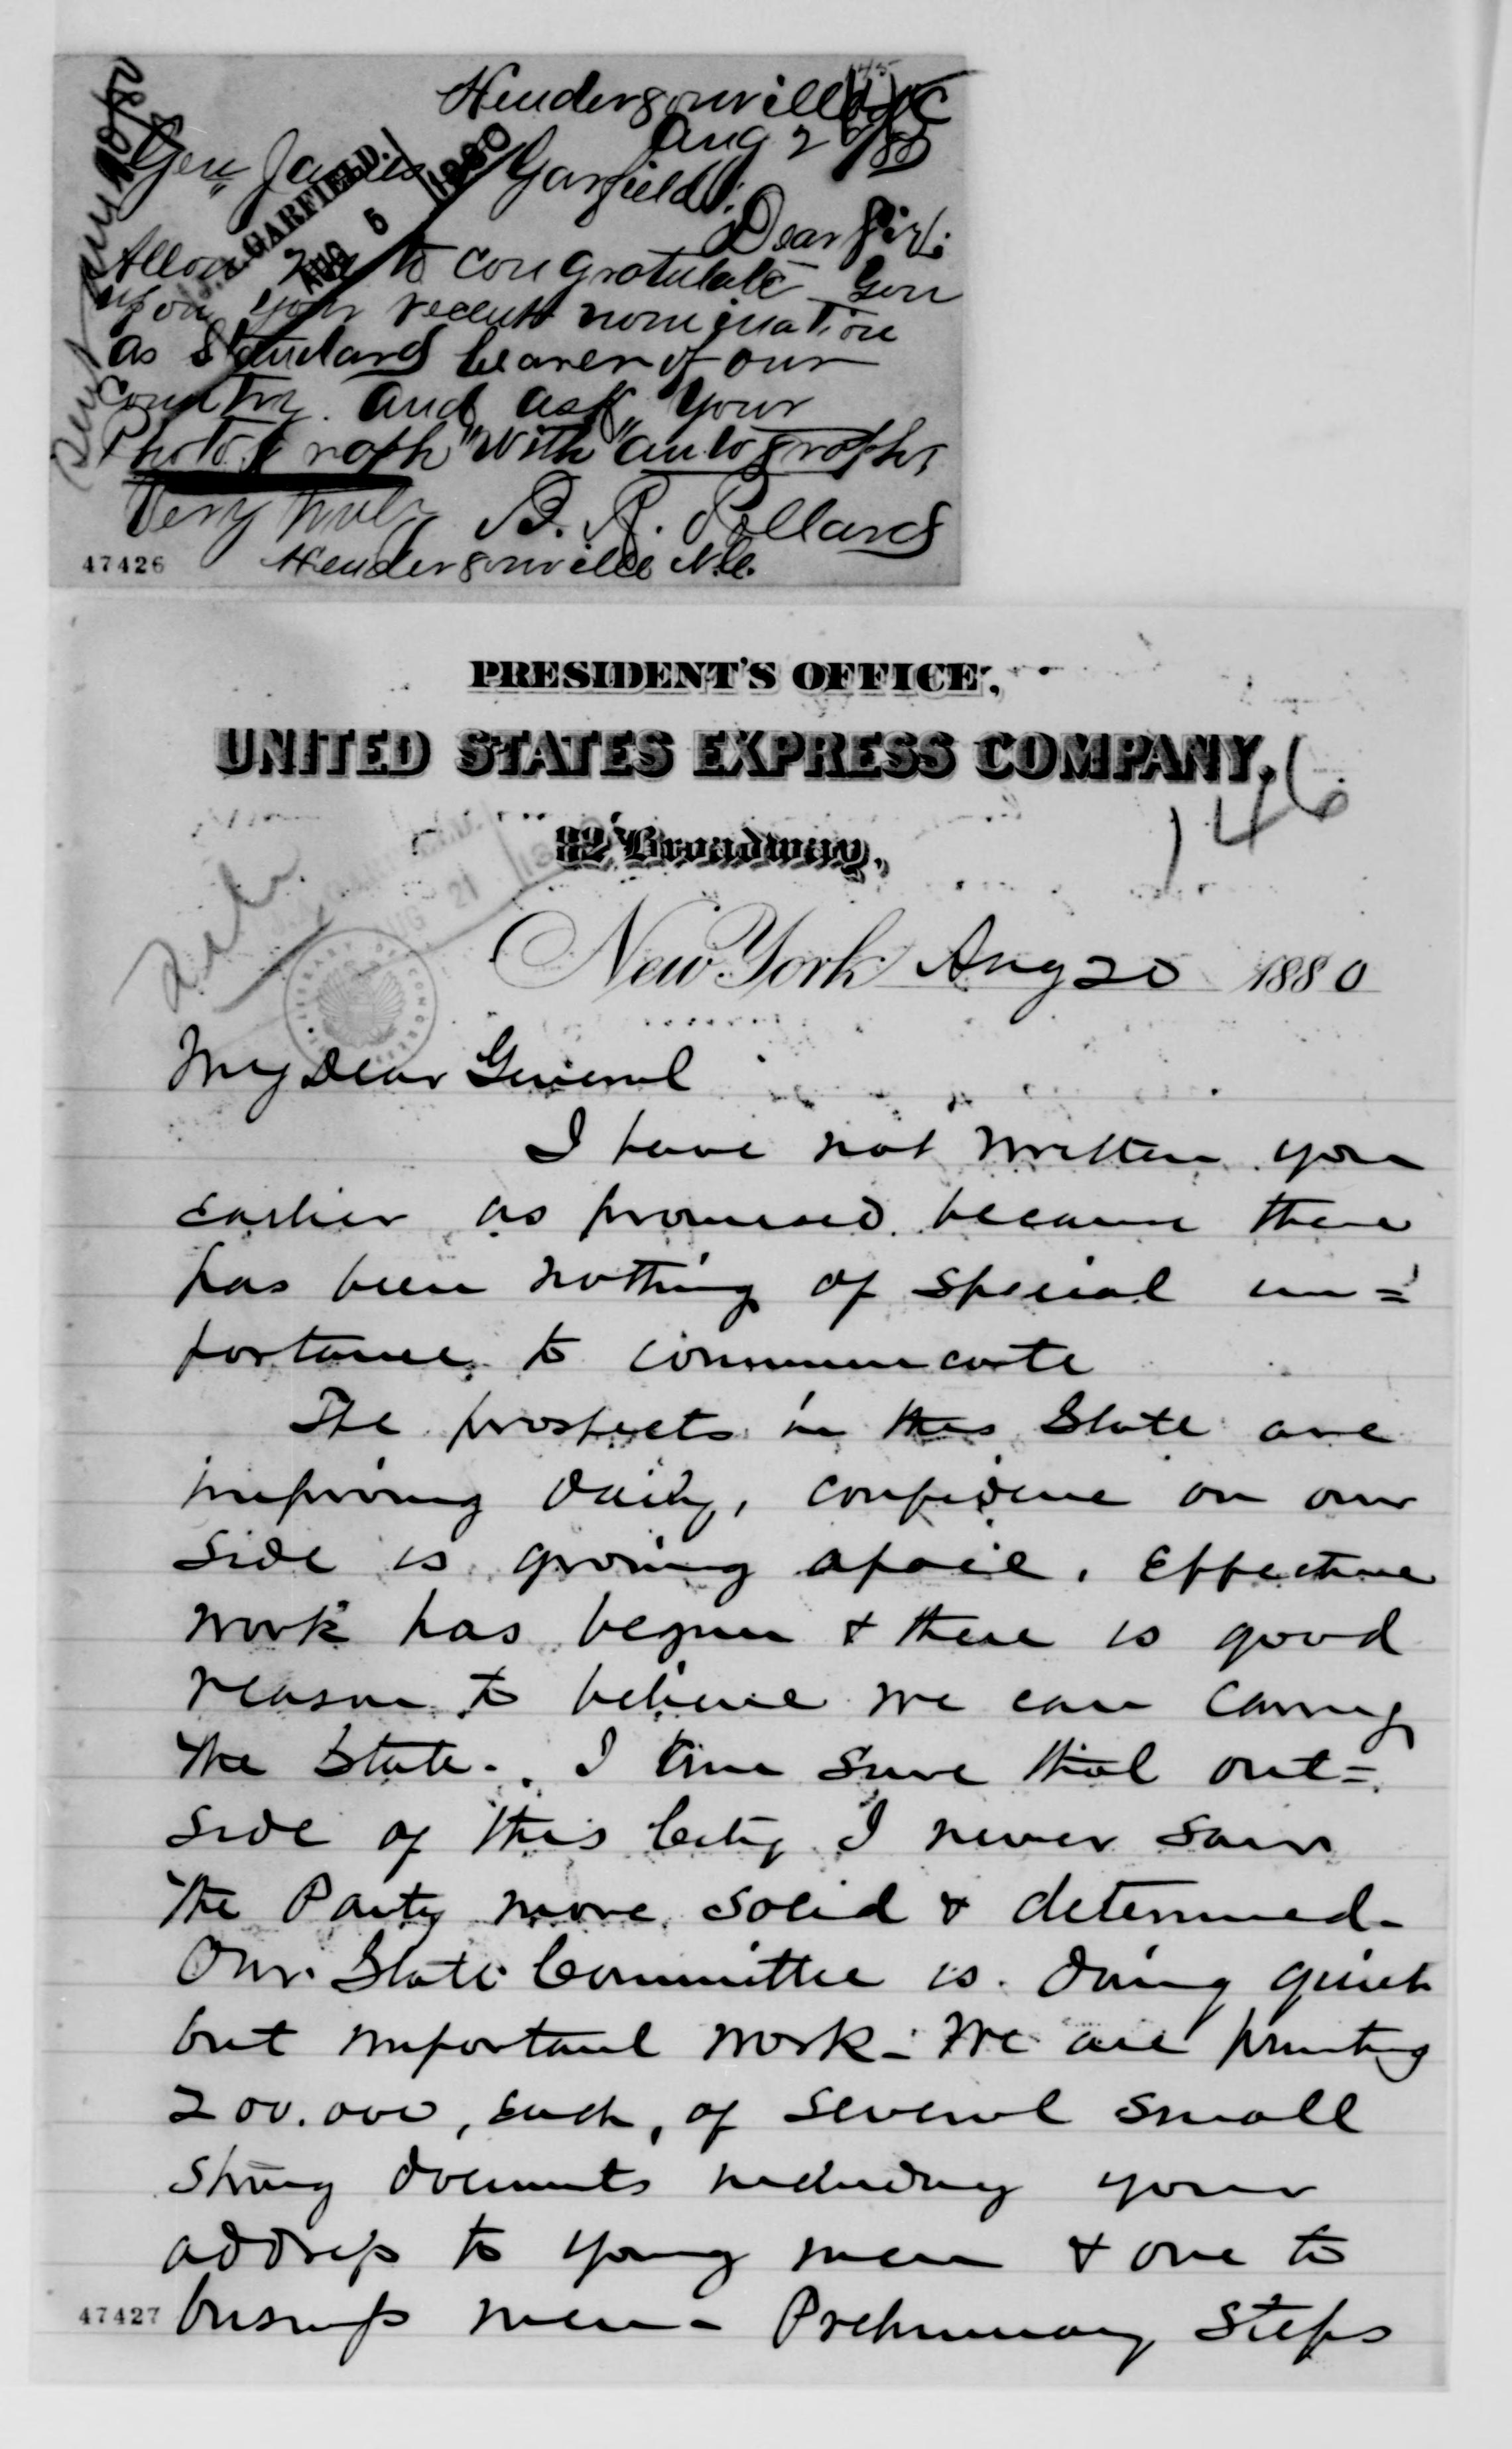 145
Hendersonville N.C
Aug 2 /80
Gen James Garfield:
Dear Sir:
Allow me to congratulate you
upon your recent nomination
as standard bearer of our
Country. and ask your
Photograph "with" autograph,
Very truly B. R. Pollard
Hendersonville N.C.
J. A. GARFIELD.
AUG 5 1880
47426
PRESIDENT'S OFFICE,
UNITED STATES EXPRESS COMPANY,
146
82 Broadway,
AUG 21
LIBRARY OF CONGRESS
New York Aug 20 1880
My Dear General
I have not written you
earlier as promised because there
has been nothing of special im=
portance to communicate
The prospects in this State are
improving daily, confidence on our
side is growing apace. Effective
work has begun & there is good
reason to believe we can carry
the State. I am sure that out=
side of this City I never saw
the Party more solid & determined.
Our State Committee is doing quiet
but important work - We are printing
200.000, each, of several small
strong documents including your
address to young men & one to
business men - Preliminary steps
47427